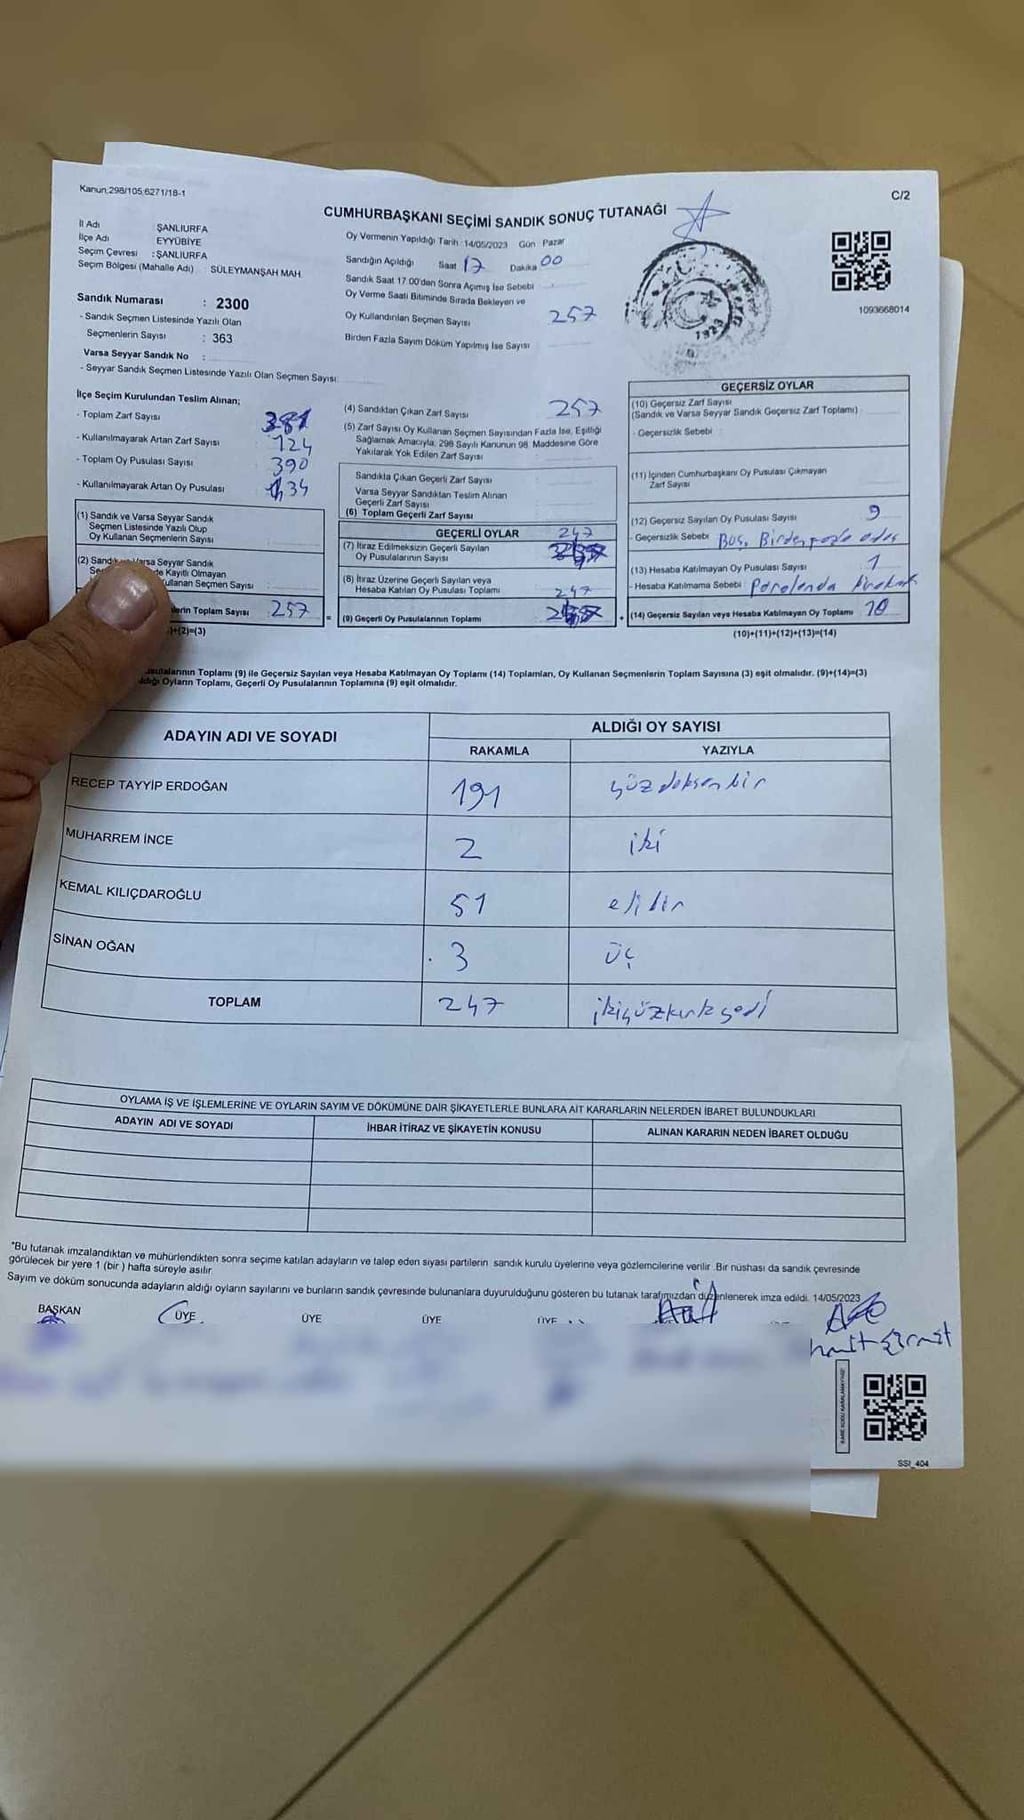 Kanun;298/105;6271/18-1
C/2
CUMHURBAŞKANI SEÇİMİ SANDIK SONUÇ TUTANAĞI
İl Adı ŞANLIURFA
İlçe Adı EYYÜBİYE
Seçim Çevresi : ŞANLIURFA
Seçim Bölgesi (Mahalle Adı) SÜLEYMANŞAH MAH.
Sandık Numarası : 2300
- Sandık Seçmen Listesinde Yazılı Olan
Seçmenlerin Sayısı : 363
Varsa Seyyar Sandık No :
- Seyyar Sandık Seçmen Listesinde Yazılı Olan Seçmen Sayısı:
Oy Vermenin Yapıldığı Tarih :14/05/2023 Gün Pazar
Sandığın Açıldığı Saat 17 Dakika 00
Sandık Saat 17.00'den Sonra Açımış İse Sebebi
Oy Verme Saati Bitiminde Sırada Bekleyen ve
Oy Kullandırılan Seçmen Sayısı 257
Birden Fazla Sayım Döküm Yapılmış İse Sayısı
1923
1093668014
İlçe Seçim Kurulundan Teslim Alınan;
- Toplam Zarf Sayısı 381
- Kullanılmayarak Artan Zarf Sayısı 124
- Toplam Oy Pusulası Sayısı 390
- Kullanılmayarak Artan Oy Pusulası 34
(1) Sandık ve Varsa Seyyar Sandık
Seçmen Listesinde Yazılı Olup
Oy Kullanan Seçmenlerin Sayısı
(2) Sandık ve Varsa Seyyar Sandık
de Kayıtlı Olmayan
ullanan Seçmen Sayısı
lerin Toplam Sayısı 257
)+(2)=(3)
(4) Sandıktan Çıkan Zarf Sayısı 257
(5) Zarf Sayısı Oy Kullanan Seçmen Sayısından Fazla İse, Eşitliği
Sağlamak Amacıyla, 298 Sayılı Kanunun 98. Maddesine Göre
Yakılarak Yok Edilen Zarf Sayısı
Sandıkta Çıkan Geçerli Zarf Sayısı
Varsa Seyyar Sandıktan Teslim Alınan
Geçerli Zarf Sayısı
(6) Toplam Geçerli Zarf Sayısı
GEÇERLİ OYLAR 247
(7) İtiraz Edilmeksizin Geçerli Sayılan
Oy Pusulalarının Sayısı
(8) İtiraz Üzerine Geçerli Sayılan veya
Hesaba Katılan Oy Pusulası Toplamı 247
(9) Geçerli Oy Pusulalarının Toplamı
GEÇERSİZ OYLAR
(10) Geçersiz Zarf Sayısı
(Sandık ve Varsa Seyyar Sandık Geçersiz Zarf Toplamı)
- Geçersizlik Sebebi
(11) İçinden Cumhurbaşkanı Oy Pusulası Çıkmayan
Zarf Sayısı
(12) Geçersiz Sayılan Oy Pusulası Sayısı 9
- Geçersizlik Sebebi Boş, Birden
(13) Hesaba Katılmayan Oy Pusulası Sayısı 1
- Hesaba Katılmama Sebebi
(14) Geçersiz Sayılan veya Hesaba Katılmayan Oy Toplamı 10
(10)+(11)+(12)+(13)=(14)
usulalarının Toplamı (9) ile Geçersiz Sayılan veya Hesaba Katılmayan Oy Toplamı (14) Toplamları, Oy Kullanan Seçmenlerin Toplam Sayısına (3) eşit olmalıdır. (9)+(14)=(3)
ldığı Oyların Toplamı, Geçerli Oy Pusulalarının Toplamına (9) eşit olmalıdır.
ADAYIN ADI VE SOYADI ALDIĞI OY SAYISI
RAKAMLA YAZIYLA
RECEP TAYYİP ERDOĞAN 191 yüzdoksanbir
MUHARREM İNCE 2 iki
KEMAL KILIÇDAROĞLU 51 ellibir
SİNAN OĞAN 3 üç
TOPLAM 247 ikiyüzkırkyedi
OYLAMA İŞ VE İŞLEMLERİNE VE OYLARIN SAYIM VE DÖKÜMÜNE DAİR ŞİKAYETLERLE BUNLARA AİT KARARLARIN NELERDEN İBARET BULUNDUKLARI
ADAYIN ADI VE SOYADI İHBAR İTİRAZ VE ŞİKAYETİN KONUSU ALINAN KARARIN NEDEN İBARET OLDUĞU
*Bu tutanak imzalandıktan ve mühürlendikten sonra seçime katılan adayların ve talep eden siyasi partilerin sandık kurulu üyelerine veya gözlemcilerine verilir. Bir nüshası da sandık çevresinde
görülecek bir yere 1 (bir ) hafta süreyle asılır.
Sayım ve döküm sonucunda adayların aldığı oyların sayılarını ve bunların sandık çevresinde bulunanlara duyurulduğunu gösteren bu tutanak tarafımızdan düzenlenerek imza edildi. 14/05/2023
BAŞKAN ÜYE ÜYE ÜYE ÜYE
SSI_404